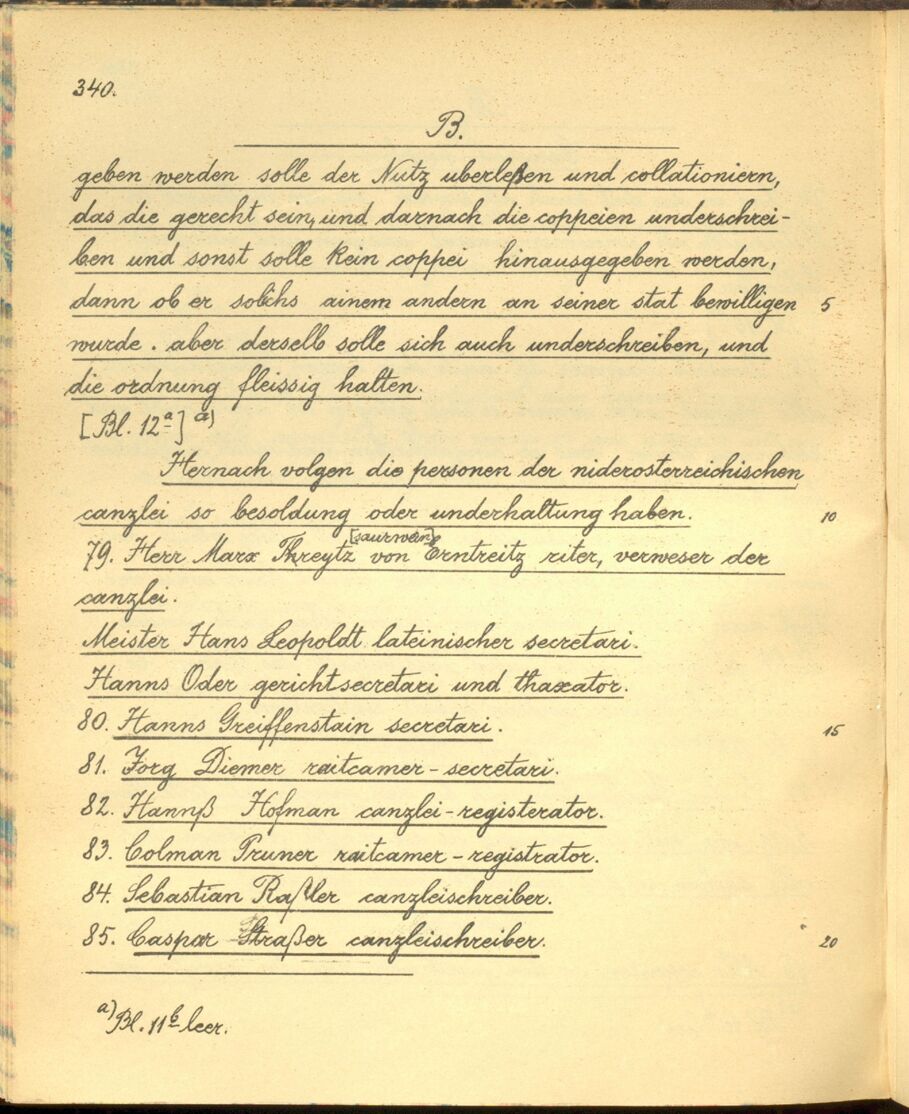 340.
B.
geben werden solle der Nutz uberleßen und collationiern,
das die gerecht sein, und darnach die coppeien underschrei-
ben und sonst solle kein coppei hinausgegeben werden,
dann ob er solichs ainem andern an seiner stat bewilligen 5
wurde. aber derselb solle sich auch underschreiben, und
die ordnung fleissig halten.
[Bl. 12a] a)
Hernach volgen die personen der niderosterreichischen
canzlei so besoldung oder underhaltung haben. 10
[saurwein]
79. Herr Marx Threytz von Erntreitz riter, verweser der
canzlei.
Meister Hans Leopoldt lateinischer secretari.
Hanns Oder gerichtsecretari und thaxator.
80. Hanns Greiffenstain secretari. 15
81. Jorg Diemer raitcamer-secretari.
82. Hannß Hofman canzlei-registerator.
83. Colman Pruner raitcamer-registrator.
84. Sebastian canzleischreiber.
85. Caspar Straßer canzleischreiber. 20
a) Bl. 11b leer.